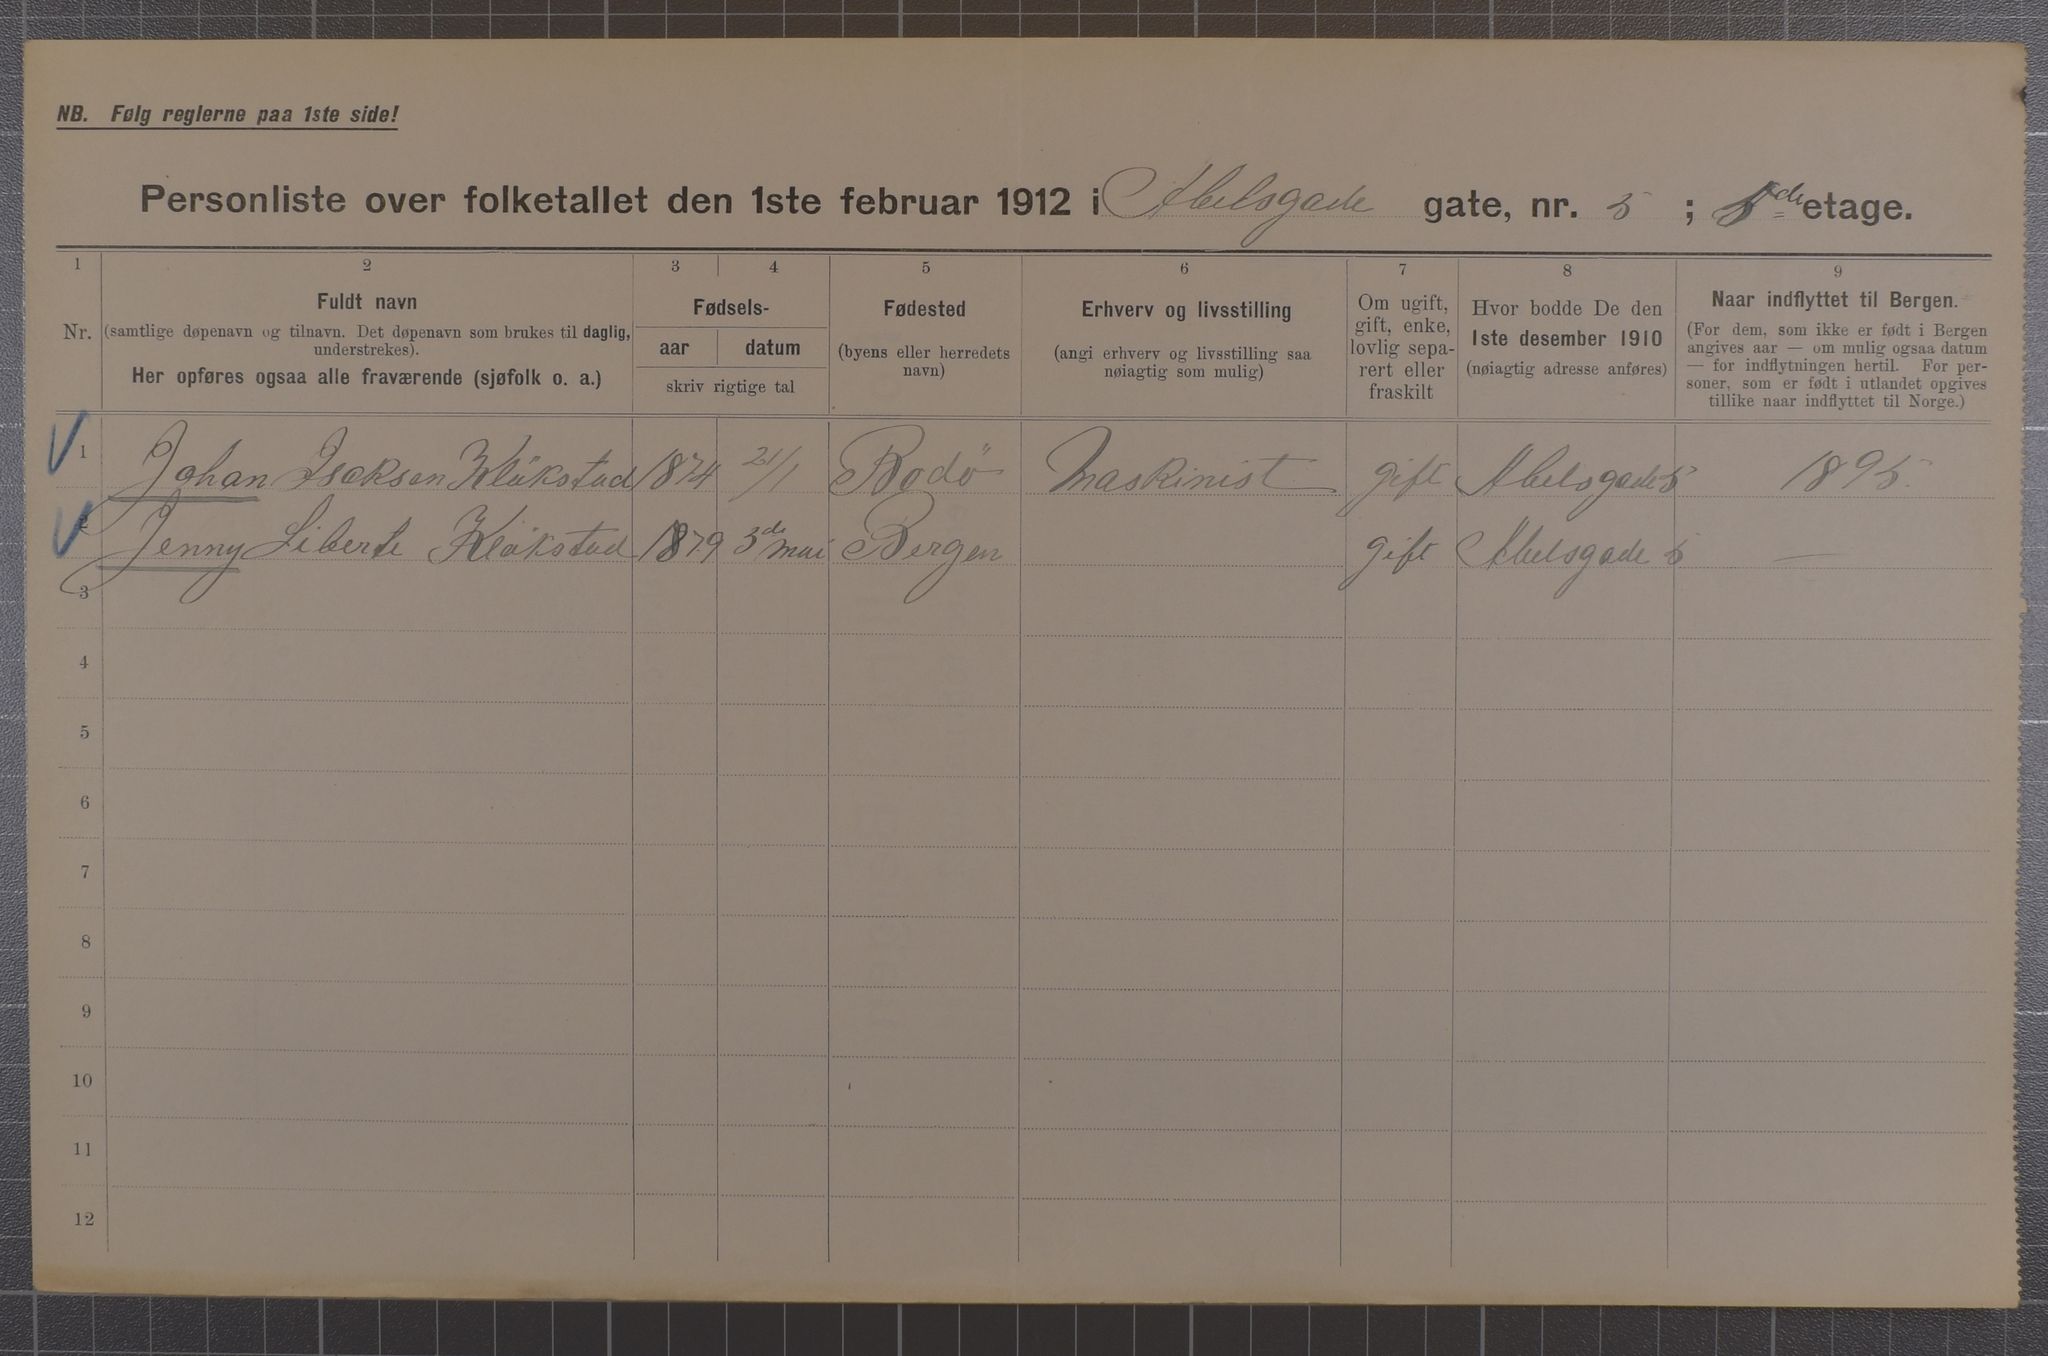 NB. Følg reglerne paa 1ste side!
Personliste over folketallet den 1ste februar 1912 i Abelsgade gate, nr. 5 ; etage.
1 2 3 4 5 6 7 8 9
Nr.
Fuldt navn
(samtlige døpenavn og tilnavn. Det døpenavn som brukes til daglig,
understrekes).
Her opføres ogsaa alle fraværende (sjøfolk o. a.)
Fødsels-
aar datum
skriv rigtige tal
Fødested
(byens eller herredets
navn)
Erhverv og livsstilling
(angi erhverv og livsstilling saa
nøiagtig som mulig)
Om ugift,
gift, enke,
lovlig sepa-
rert eller
fraskilt
Hvor bodde De den
1ste desember 1910
(nøiagtig adresse anføres)
Naar indflyttet til Bergen.
(For dem, som ikke er født i Bergen
angives aar — om mulig ogsaa datum
— for indflytningen hertil. For per-
soner, som er født i utlandet opgives
tillike naar indflyttet til Norge.)
1 Johan Isaksen Kläkstad 1874 21/1 Bodö Maskinist gift Abelsgade 5 1895.
2 Jenny Liberte Kläkstad 1879 3de mai Bergen gift Abelsgade 5 —
3
4
5
6
7
8
9
10
11
12